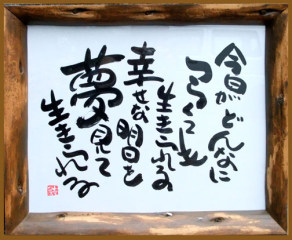 今日がどんなに
つらくても
生きられる
幸せな明日を
夢見て
生きられる